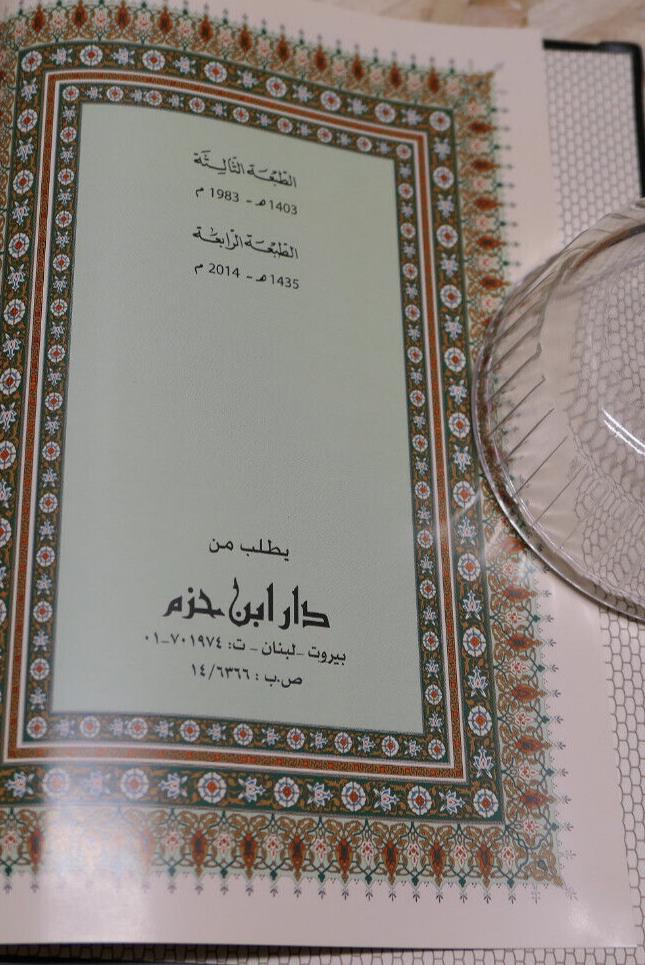 الطبعة الثالثة
1403 هـ - 1983 م
الطبعة الرابعة
1435 هـ - 2014 م
يطلب من
دار ابن حزم
بيروت - لبنان - ت: ٧٠١٩٧٤-٠١
ص.ب : ١٤/٦٣٦٦